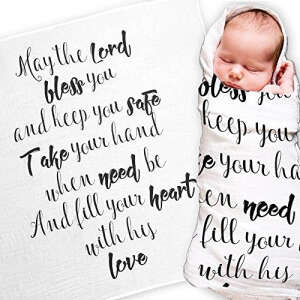 May the Lord
bless you
and keep you safe
Take your hand
when need be
And fill your heart
with his
love
bless you
keep you
your hand
en need
fill your h
with his